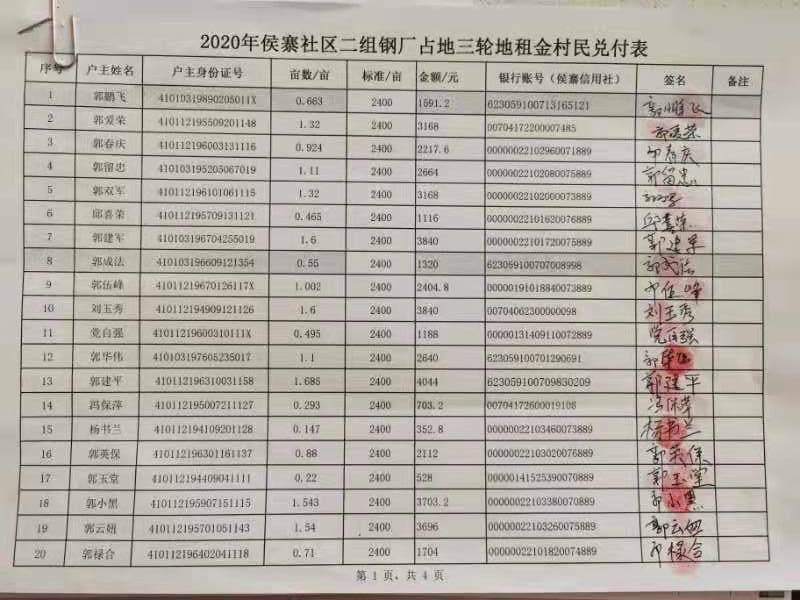 2020年侯寨社区二组钢厂占地三轮地租金村民兑付表
序号 户主姓名 户主身份证号 亩数/亩 标准/亩 金额/元 银行账号（侯寨信用社） 签名 备注
1 郭鹏飞 41010319890205011X 0.663 2400 1591.2 623059100713165121 郭鹏飞
2 郭爱荣 410112195509201148 1.32 2400 3168 00704172200007485 郭爱荣
3 郭春庆 410112196003131116 0.924 2400 2217.6 00000022102960071889 郭春庆
4 郭留忠 410103195205067019 1.11 2400 2664 00000022102080075889 郭留忠
5 郭双军 410112196101061115 1.32 2400 3168 00000022102000073889
6 邱喜荣 410112195709131121 0.465 2400 1116 00000022101620076889 邱喜荣
7 郭建军 410103196704255019 1.6 2400 3840 00000022101720075889 郭建军
8 郭成法 410103196609121354 0.55 2400 1320 623059100707008998 郭成法
9 郭伍峰 41011219670126117X 1.002 2400 2404.8 00000019101884007​3889 郭伍峰
10 刘玉秀 410112194909121126 1.6 2400 3840 00704062300000098 刘玉秀
11 党自强 41011219600310111X 0.495 2400 1188 000000131409110072889 党自强
12 郭华伟 410103197605235017 1.1 2400 2640 623059100701290691 郭华伟
13 郭建平 410112196310031158 1.685 2400 4044 623059100709830209 郭建平
14 冯保萍 410112195007211127 0.293 2400 703.2 00704172600019106 冯保萍
15 杨书兰 410112194109201128 0.147 2400 352.8 00000022103460073889 杨书兰
16 郭英保 410112196301161137 0.88 2400 2112 00000022103020076889 郭英保
17 郭玉堂 410112194409041111 0.22 2400 528 000000141525390070889 郭玉堂
18 郭小黑 410112195907151115 1.543 2400 3703.2 00000022103380070889 郭小黑
19 郭云妞 410112195701051143 1.54 2400 3696 00000022103260075889 郭云妞
20 郭禄合 410112196402041118 0.71 2400 1704 00000022101820074889 郭禄合
第 1 页，共 4 页